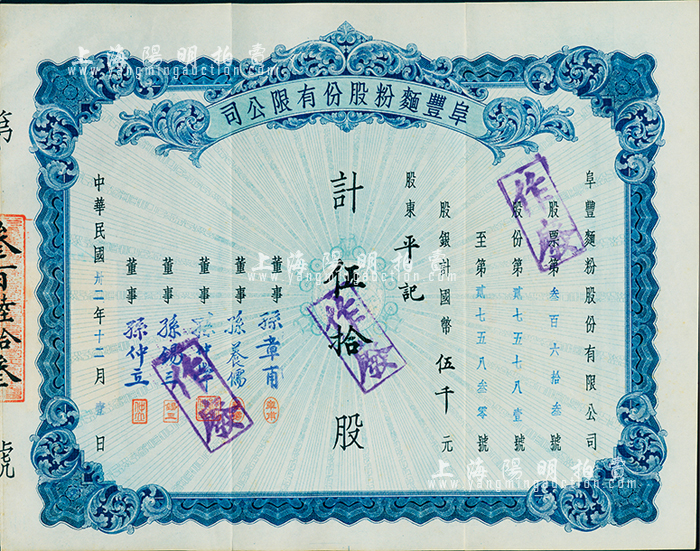 上海陽明拍賣
www.yangmingauction.com
阜豐麵粉股份有限公司
阜豐麵粉股份有限公司
股票第叁百六拾叁號
股份第貳七五七八壹號
至第貳七五八叁零號
股銀計國幣伍千元
股東平記
計伍拾股
董事孫章甫
董事孫養儒
董事
董事孫錫三
董事孫仲立
中華民國卅二年十二月壹日
第叁百陸拾叁號
作廢
作廢
作廢
上海陽明拍賣
www.yangmingauction.com
上海陽明拍賣
www.yangmingauction.com